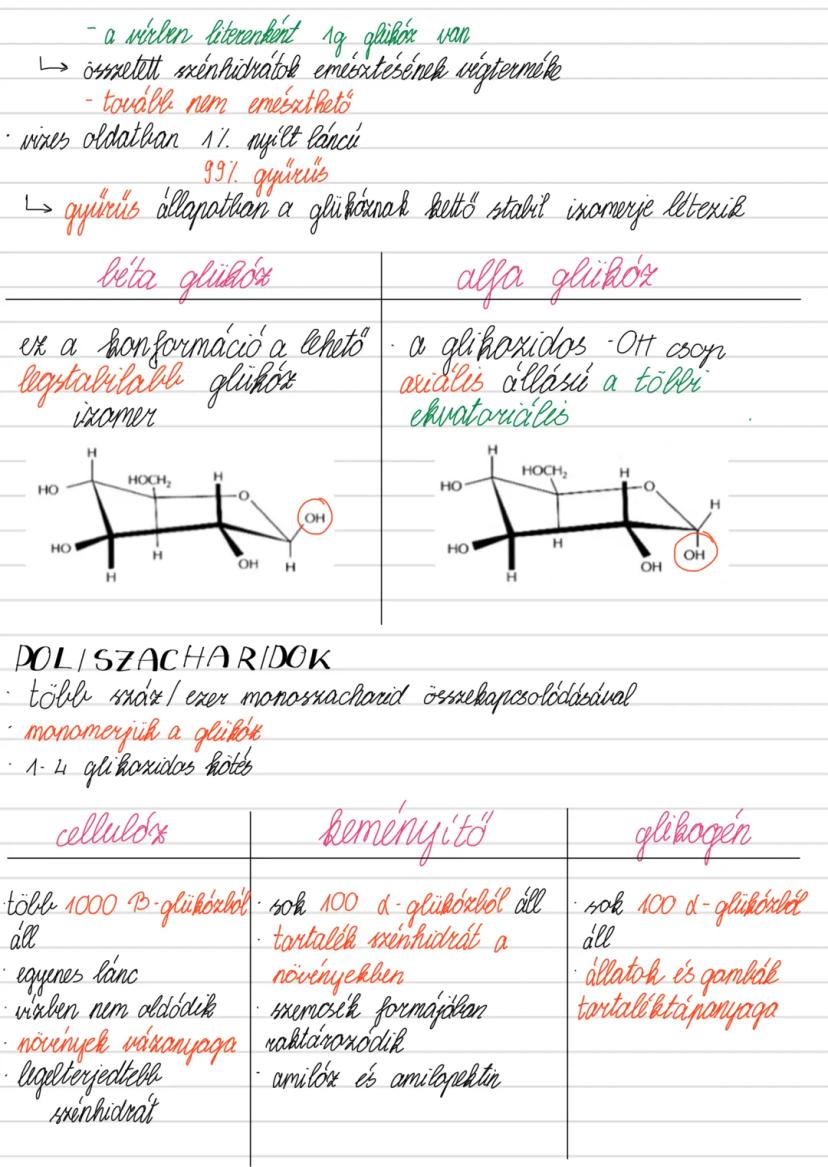 - a vérben literenként 1g glükóz van
↳ összetett szénhidrátok emésztésének végterméke
- tovább nem emészthető
· vizes oldatban 1% nyílt láncú
99% gyűrűs
↳ gyűrűs állapotban a glükóznak kettő stabil izomerje létezik
béta glükóz
ez a konformáció a lehető
legstabilabb glükóz
izomer
H
HO
HOCH₂
H
O
OH
HO
H
H
OH
H
alfa glükóz
· a glikozidos -OH csop
axiális állású a többi
ekvatoriális
H
HO
HOCH₂
H
O
H
HO
H
H
OH
OH
POLISZACHARIDOK
· több száz/ezer monoszacharid összekapcsolódásával
· monomerjük a glükóz
· 1-4 glikozidos kötés
cellulóz
· több 1000 B-glükózból
áll
· egyenes lánc
· vízben nem oldódik
· növények vázanyaga
· legelterjedtebb
szénhidrát
keményítő
· sok 100 α-glükózból áll
· tartalék szénhidrát a
növényekben
· szemcsék formájában
raktározódik
· amilóz és amilopektin
glikogén
· sok 100 α-glükózból
áll
· állatok és gombák
tartaléktápanyaga